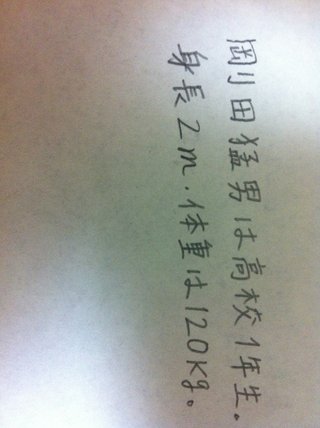 剛田猛男は高校1年生。
身長2m.体重は120kg。